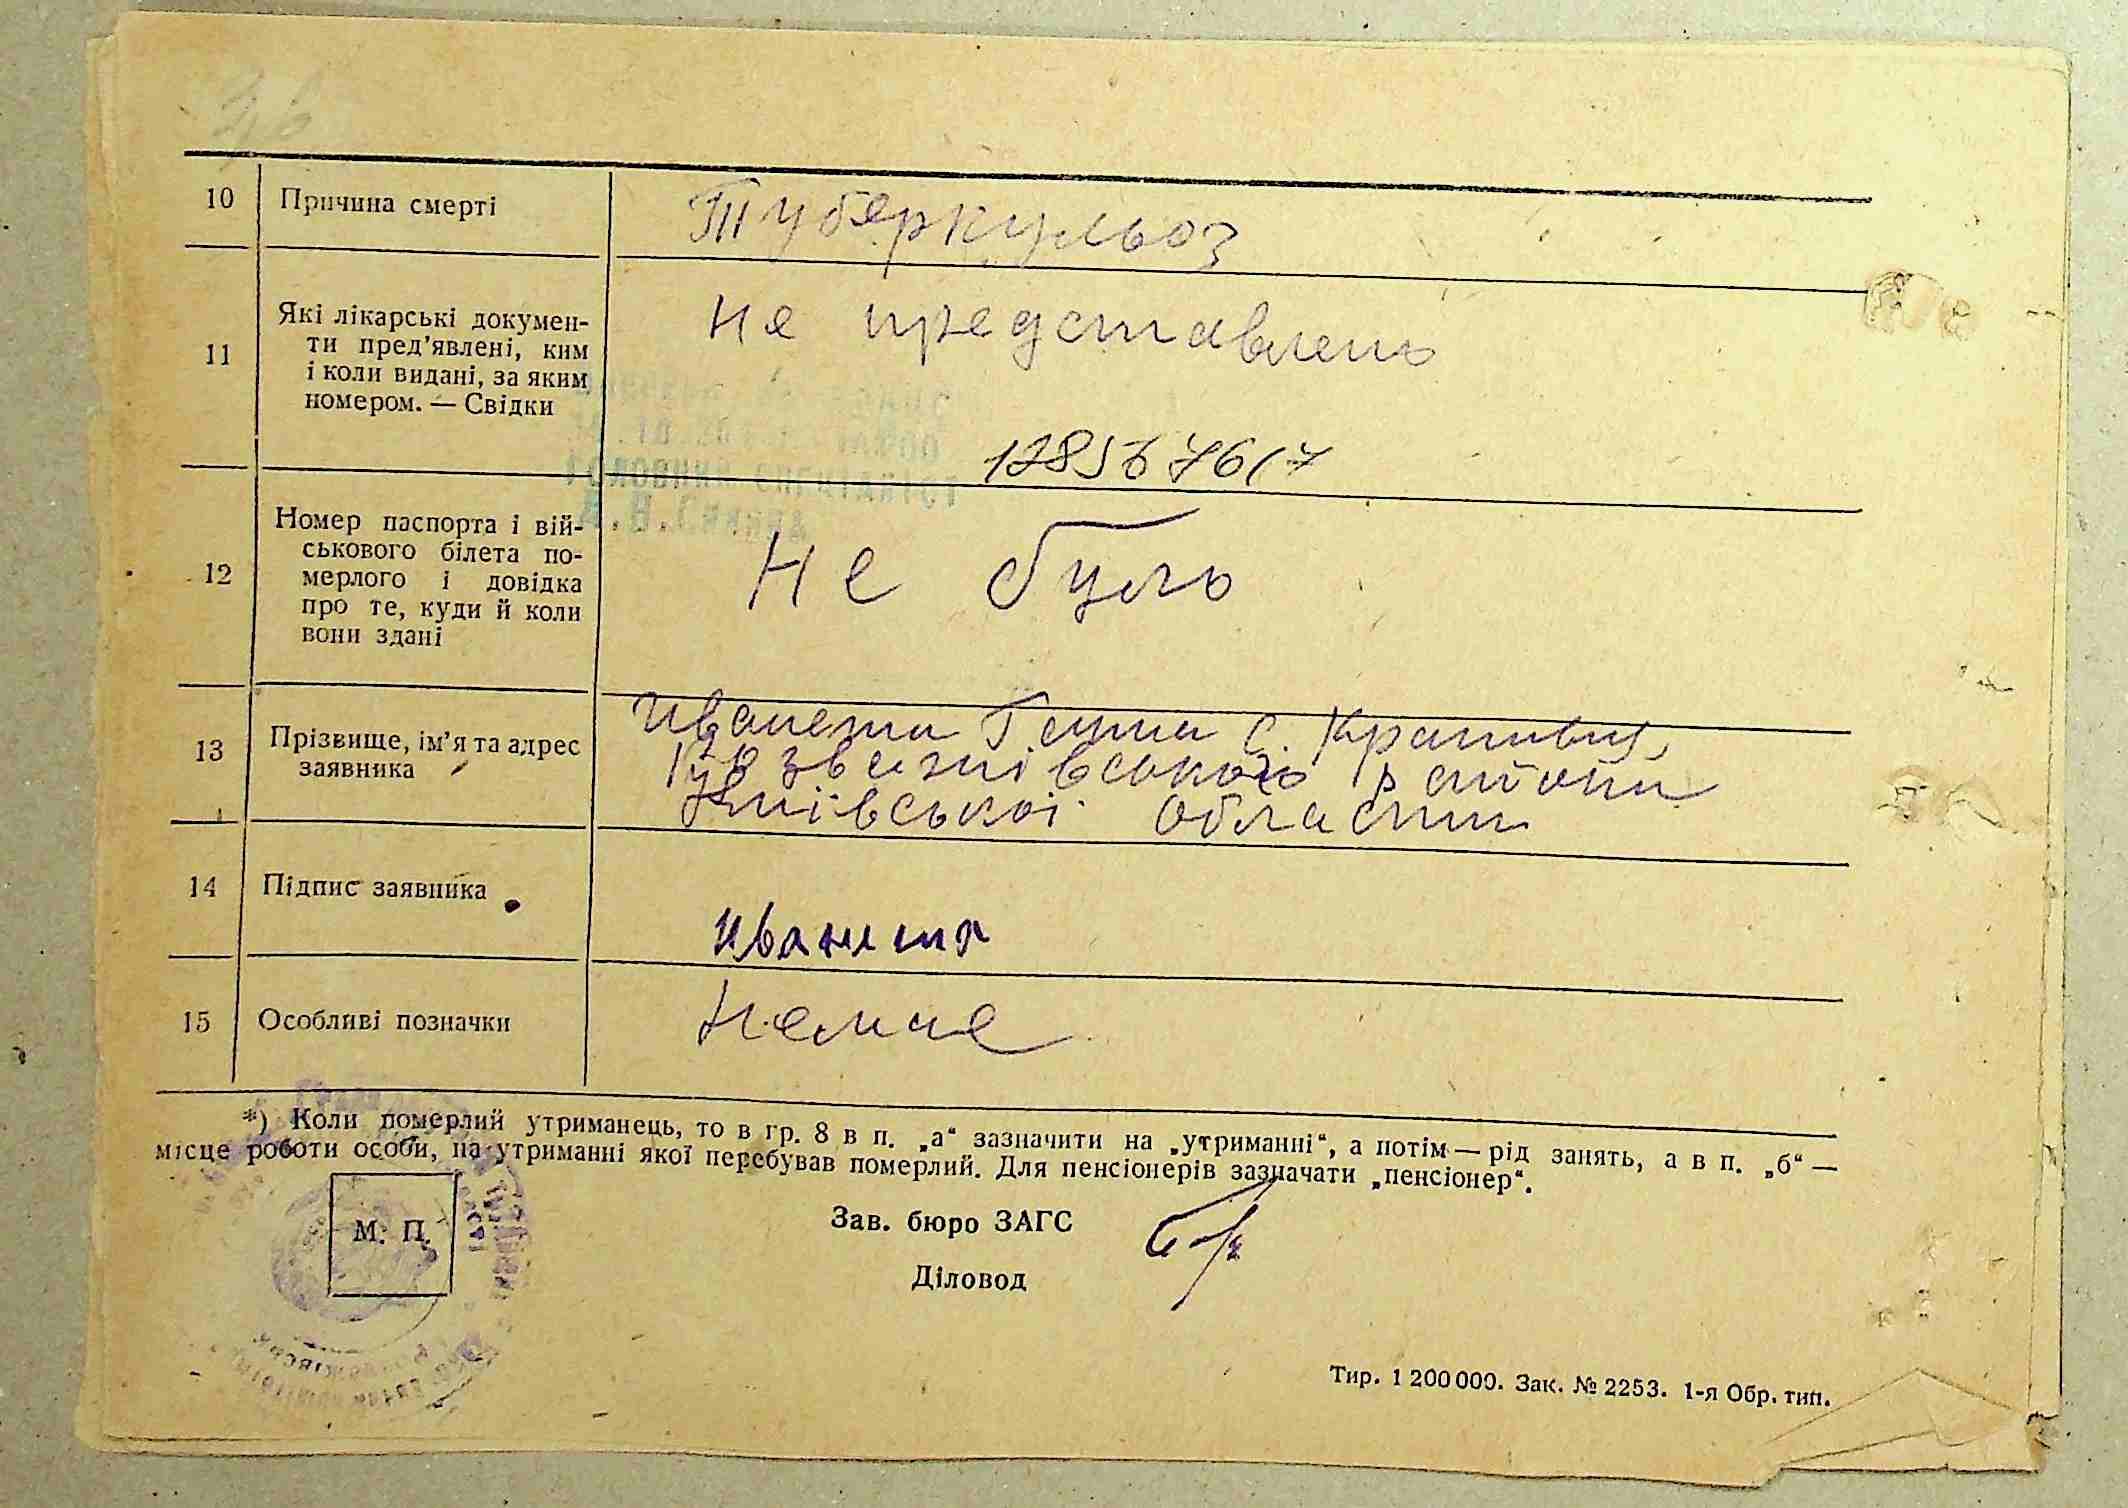 10 Причина смерті Туберкульоз
11 Які лікарські докумен-
ти пред'явлені, ким
і коли видані, за яким
номером. — Свідки
Не представлено
12 Номер паспорта і вій-
ськового білета по-
мерлого і довідка
про те, куди й коли
вони здані
Не було
13 Прізвище, ім'я та адрес
заявника
району
області
14 Підпис заявника
15 Особливі позначки Немає
*) Коли померлий утриманець, то в гр. 8 в п. „а“ зазначити на „утриманні“, а потім — рід занять, а в п. „б“ —
місце роботи особи, на утриманні якої перебував померлий. Для пенсіонерів зазначати „пенсіонер“.
М. П.
Зав. бюро ЗАГС
Діловод
Тир. 1 200 000. Зак. № 2253. 1-я Обр. тип.